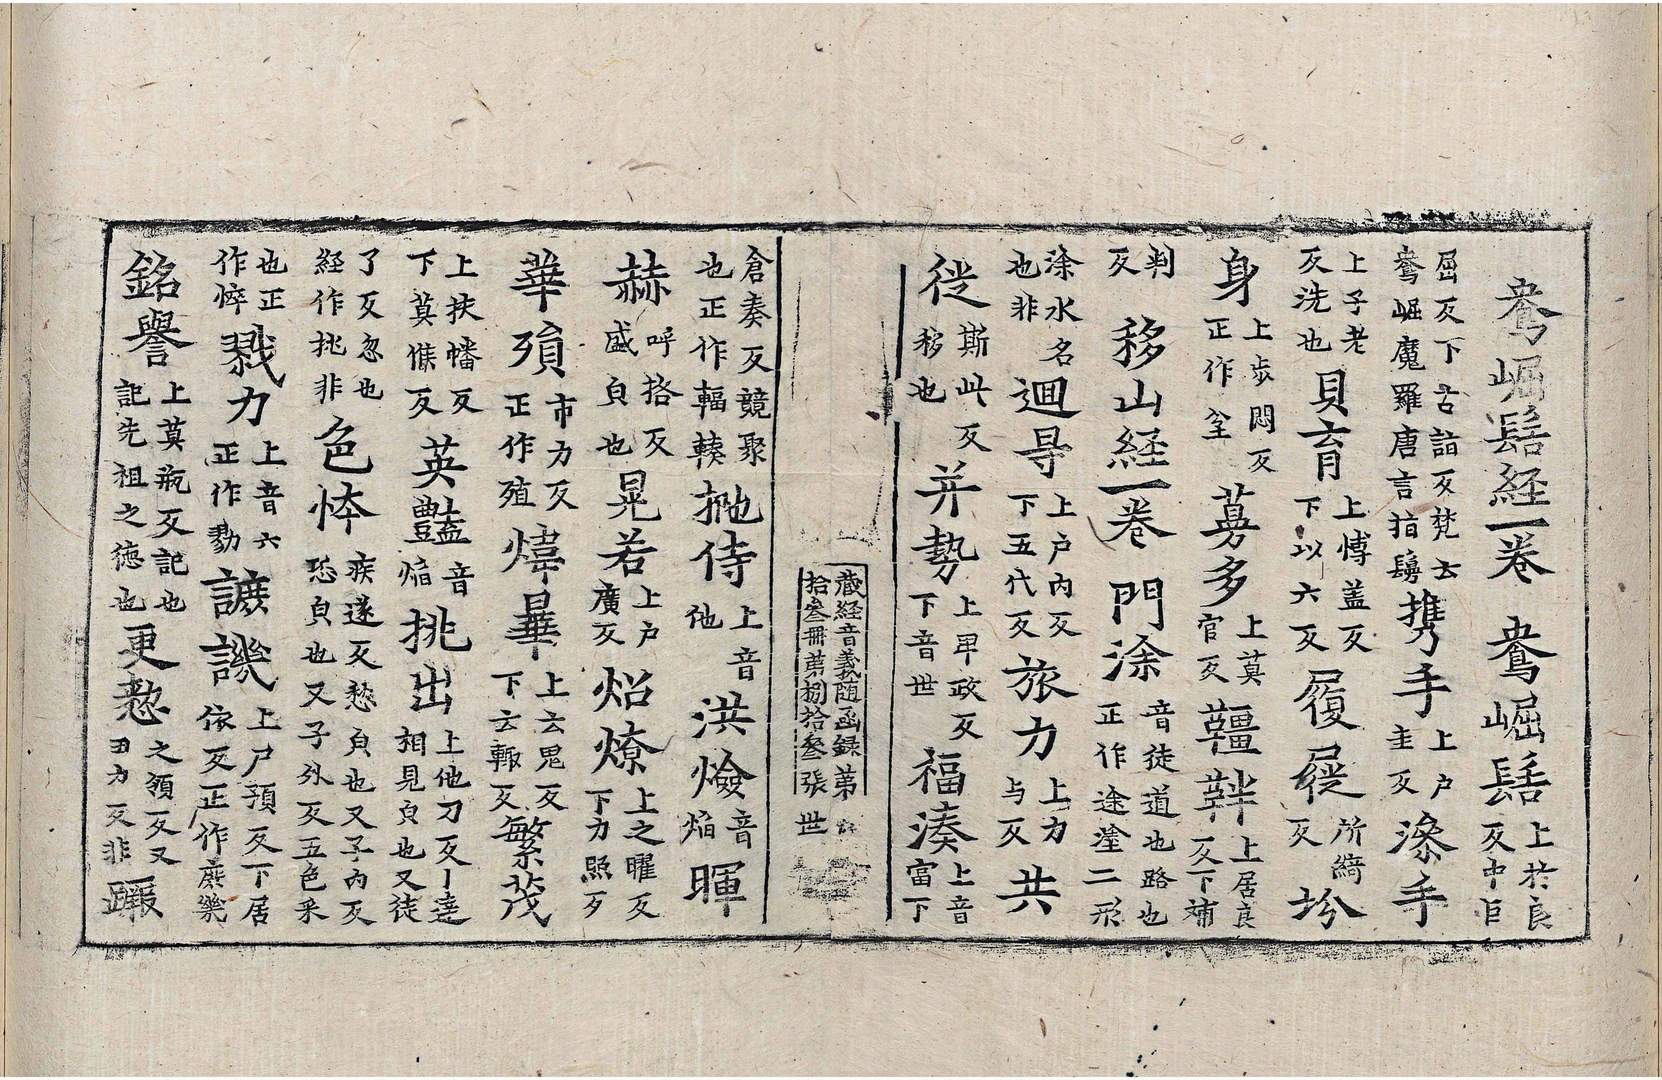 鴦崛髻経一巻 鴦崛髻 上於良反中巨
屈反下古詣反梵云鴦崛魔羅唐言指鬘 㩗手 上户圭反 澡手
上子老反洗也 貝育 上愽盖反下以六反 履屣 所綺反 坋
身 上歩悶反正作坌 蓦多 上莫官反 韁靽 上居良反下補
判反 移山経一巻 門涂 音徒道也路也正作途塗二形
涂水名也非 迴㝵 上户内反下五代反 旅力 上力与反 共
徙 斯此反移也 并勢 上卑政反下音世 福湊 上音富下
蔵経音義随函録苐
拾叁冊苐捌拾叁張 世
倉奏反競聚也正作輻輳 扡侍 上音他 洪㷿 音焰 暉
赫 呼挌反盛皃也 晃若 上户廣反 炤燎 上之曜反下力照反
華殞 市力反正作殖 煒曅 上云鬼反下云輙反 繁茂
上扶幡反下莫候反 英豔 音焰 挑出 上他刀反丨達相見皃也又徒
了反忽也経作挑非 色忰 疾遂反愁皃也又子内反恐皃也又子外反五色采
也正作悴 戮力 上音六正作勠 謶譏 上尸預反下居依反正作庶幾
銘譽 上莫瓶反記也記先祖之徳也 更憗 之領反又田力反非